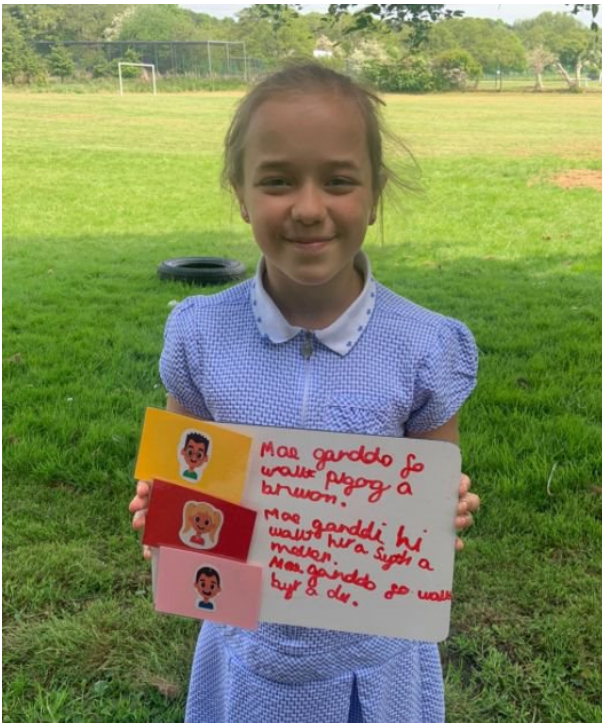 Mae ganddo fo
wallt pigog a
brwon.
Mae ganddi hi
wallt hir a syth a
melen.
Mae ganddo fo wallt
byr a du.